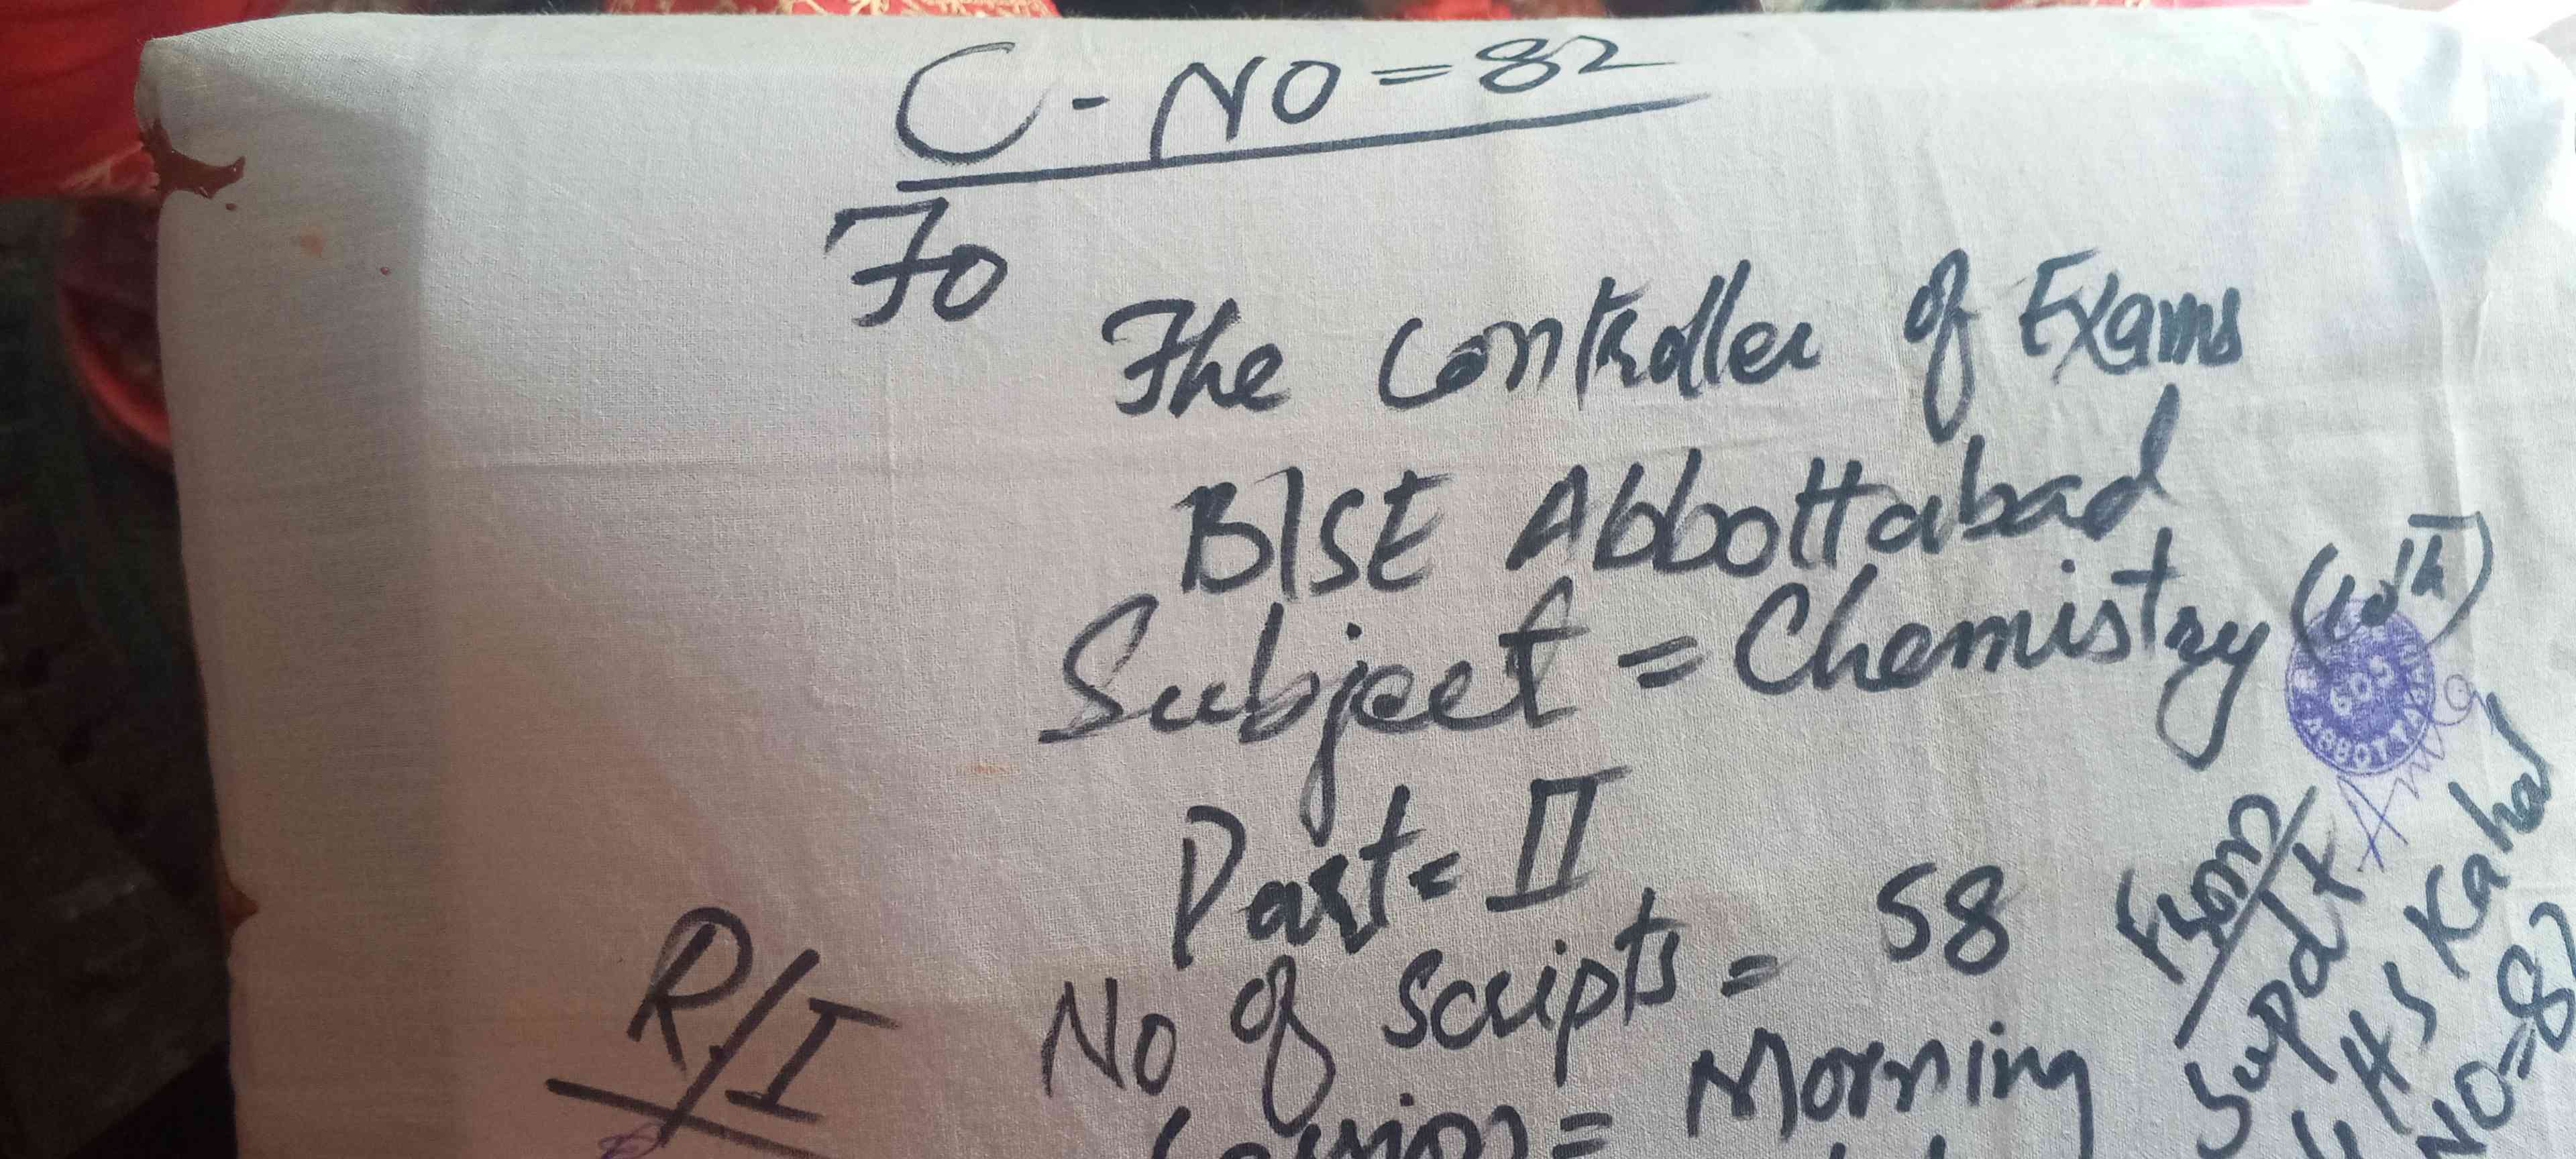 C - NO = 82
To
The Controller of Exams
BISE Abbottabad
Subject = Chemistry (10th)
Part = II
No of Scripts = 58
Session = Morning
R/I
From
Supdt
GHS Kahal
NO = 82
605
ABBOTTABAD